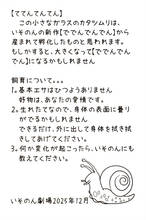 【ててんてんてん】
この小さなガラスのカタツムリは、
いそのんの新作【でんでんでんで】から
産まれて孵化したものと思われます。
もしかすると、大きくなって【でででんでん
でん】になるかもしれません
飼育について。。。
1。基本エサはひつようありません
好物は、あなたの愛情です。
2。生れたてなので、身体の表面に曇りが
でるかもしれません。
できるだけ、外に出して身体を拭き拭き
してあげてください。
3。何か変化が起こったら、いそのんにも
教えてください。
いそのん劇場2025年12月